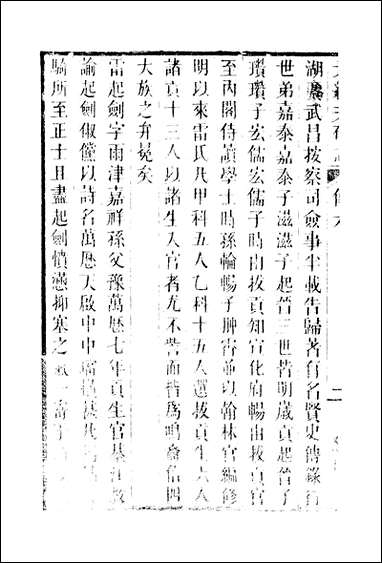 湖廣武昌按察司僉事半載告歸著有名賢史傳錄行
世弟嘉泰嘉泰子滋滋子起管三世皆明歲貢起管子
瓚瓚子宏儒宏儒子時由拔貢知宣化府暢由拔貢官
至內閣侍讀學士時孫輪暢子翀霄並以翰林官編修
明以來雷氏凡甲科五人乙科十五人選拔貢生八人
諸貢十三人以諸生入官者尤不訾而皆爲鳴
大族之弁冕矣
雷起劍字雨津嘉祥孫父豫萬歷七年貢生官
論起劍俶儻以詩名萬歷天啟中中
騎所至正士且盡起劍憤懣抑塞之